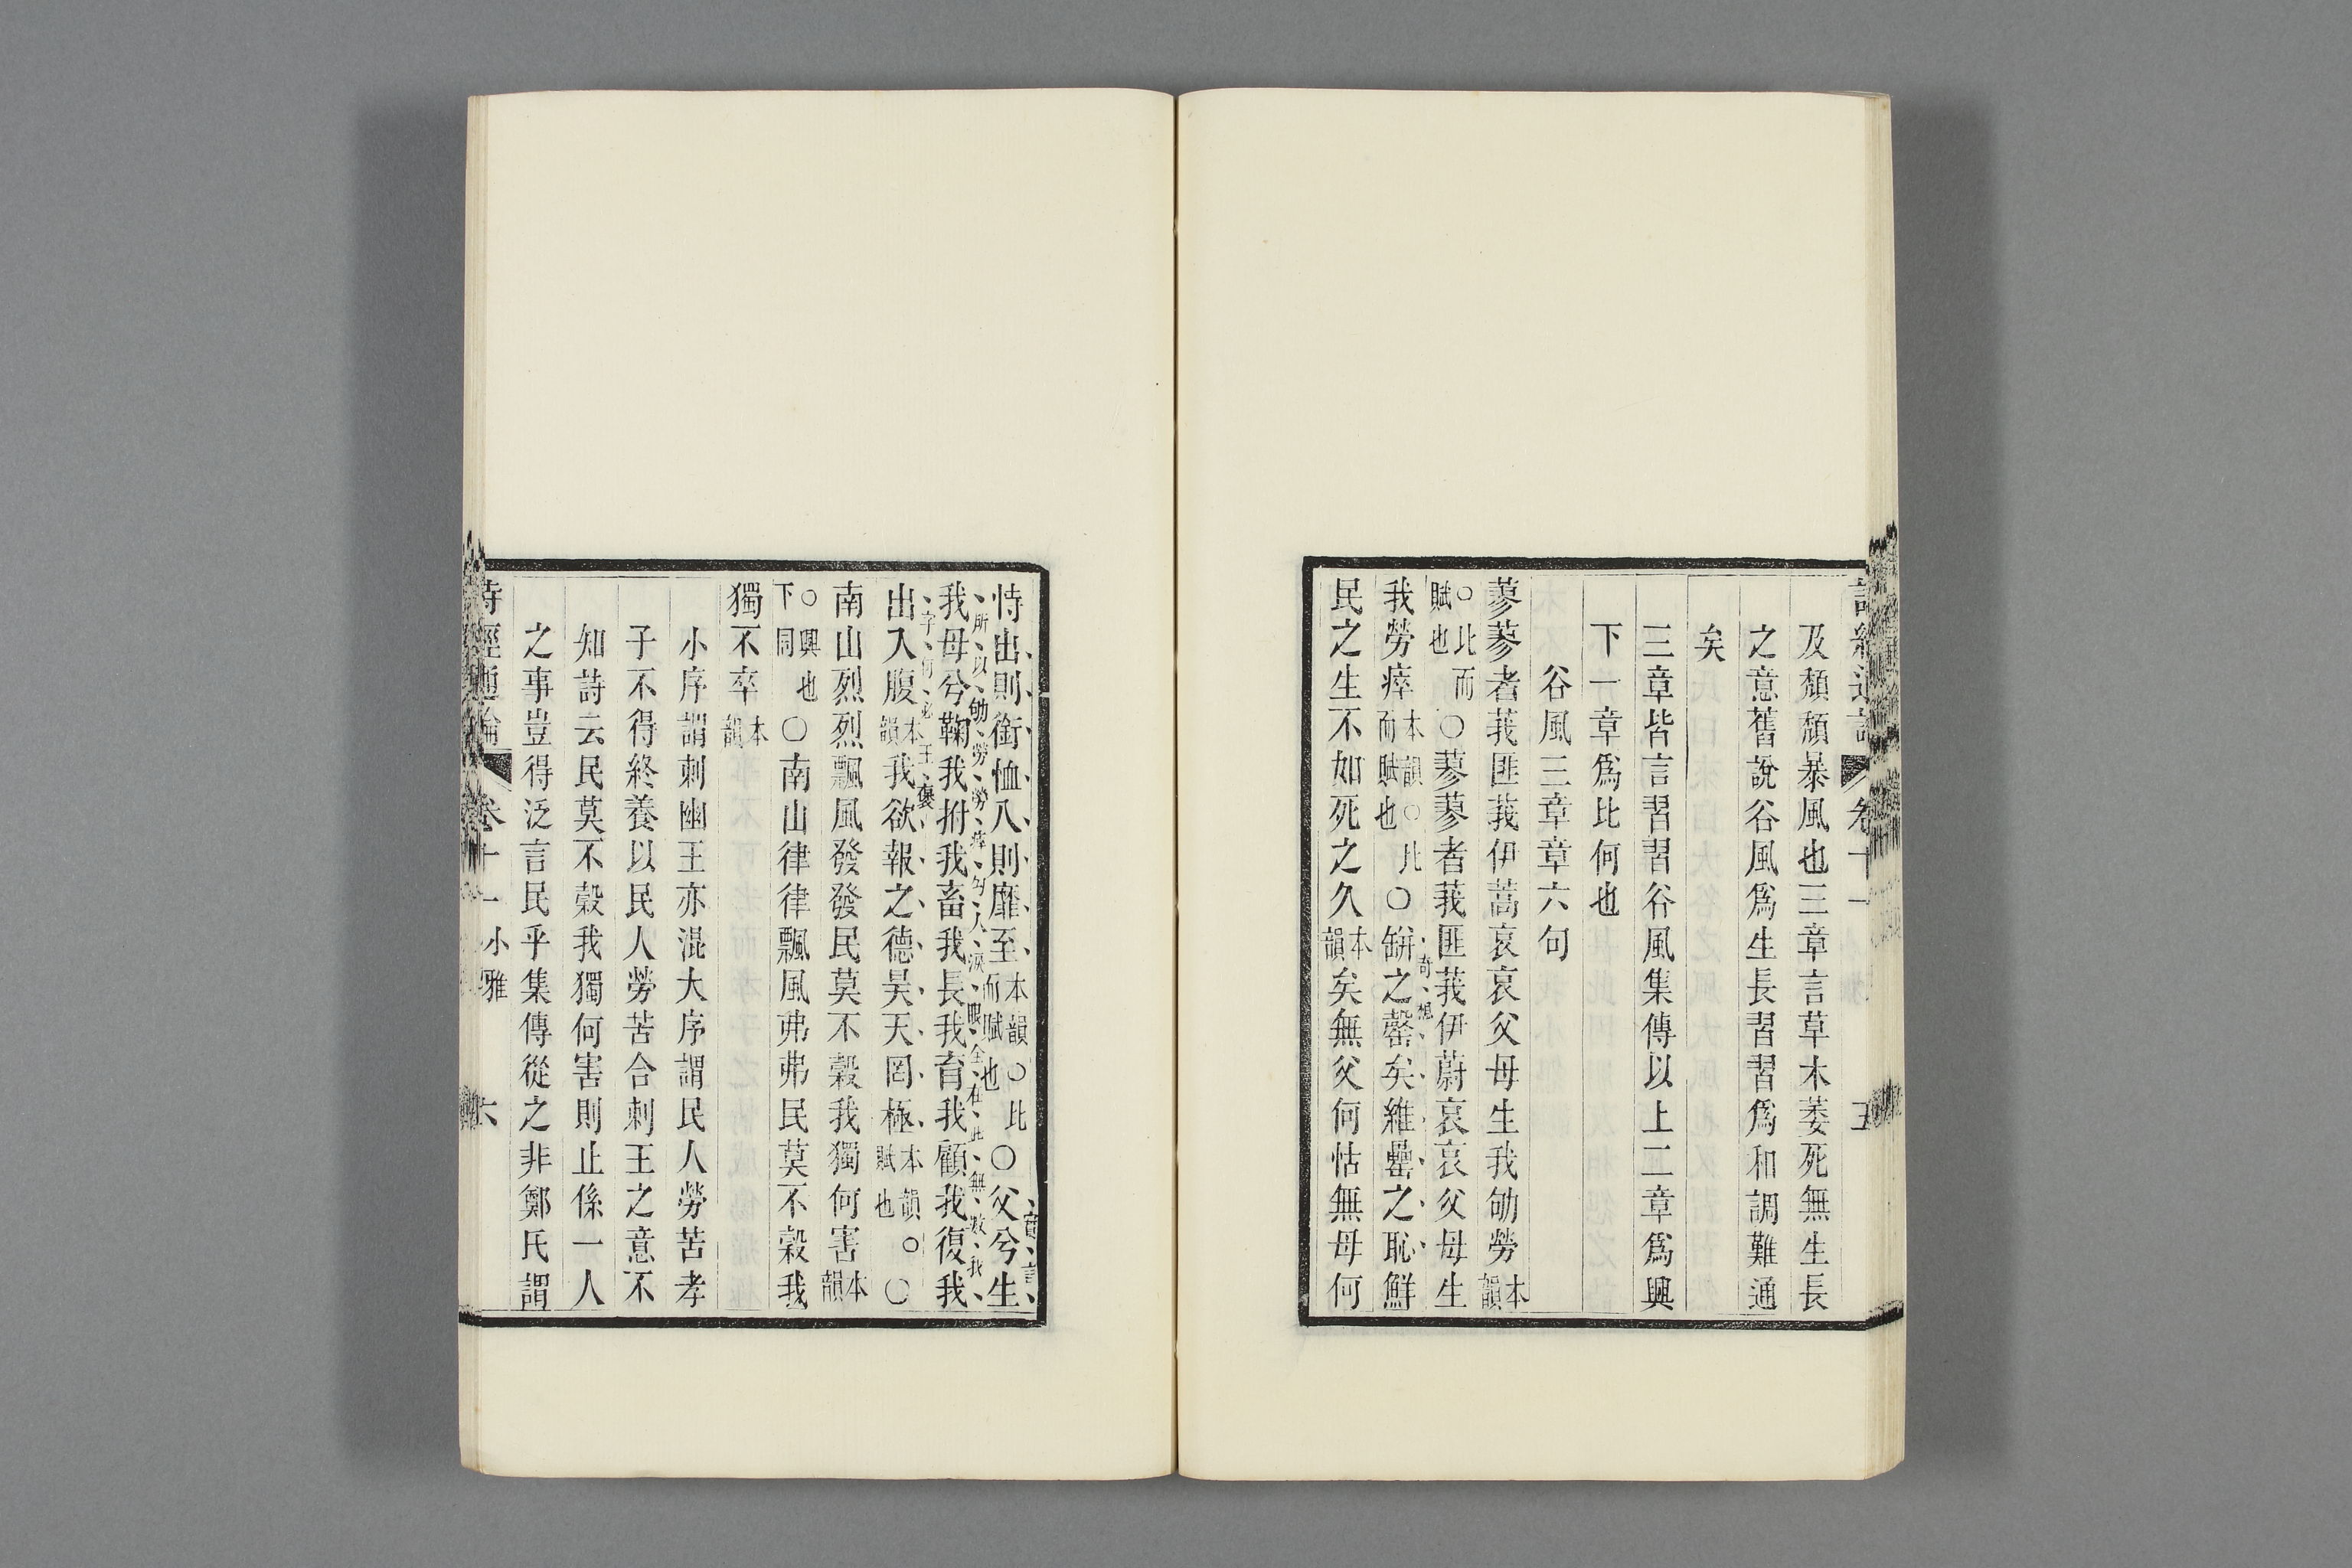 及頹頹暴風也三章言草木萎死無生長
之意舊說谷風爲生長習習爲和調難通
矣
三章皆言習習谷風集傳以上二章爲興
下一章爲比何也
谷風三章章六句
蓼蓼者莪匪莪伊蒿哀哀父母生我劬勞本韻
○比而賦也○蓼蓼者莪匪莪伊蔚哀哀父母生
我勞瘁本韻○比而賦也○缾之罄矣維罍之恥鮮
奇想
民之生不如死之久本韻矣無父何怙無母何
恃出則銜恤入則靡至本韻○比而賦也○父兮生
我母兮鞠我拊我畜我長我育我顧我復我
所以劬勞勞瘁勾人淚眼全在此無數我
出入腹本韻我欲報之德昊天罔極本韻○賦也○
字何必王褒
南山烈烈飄風發發民莫不穀我獨何害本韻
○興也下同○南山律律飄風弗弗民莫不穀我
獨不卒本韻
小序謂刺幽王亦混大序謂民人勞苦孝
子不得終養以民人勞苦合刺王之意不
知詩云民莫不穀我獨何害則止係一人
之事豈得泛言民乎集傳從之非鄭氏謂
詩經通論 卷十一 小雅 六